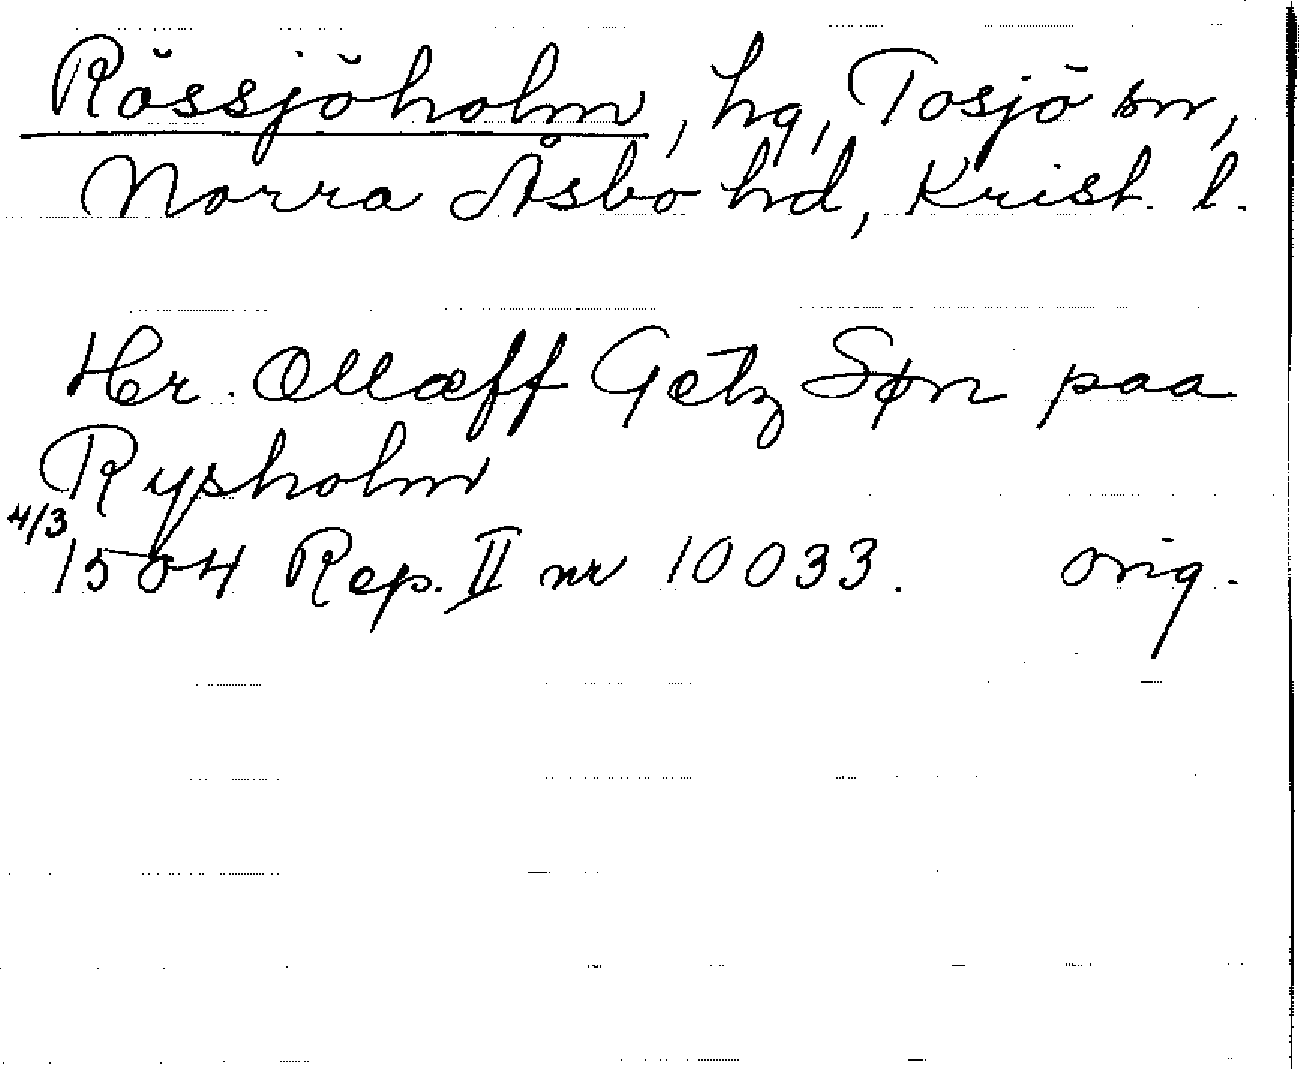 Rössjöholm, hg, Tosjö sn,
Norra Åsbo hd, Krist. l.
Her. Ollaff Getz Søn paa
Rysholm
4/3
1504 Rep. II nr 10033. orig.